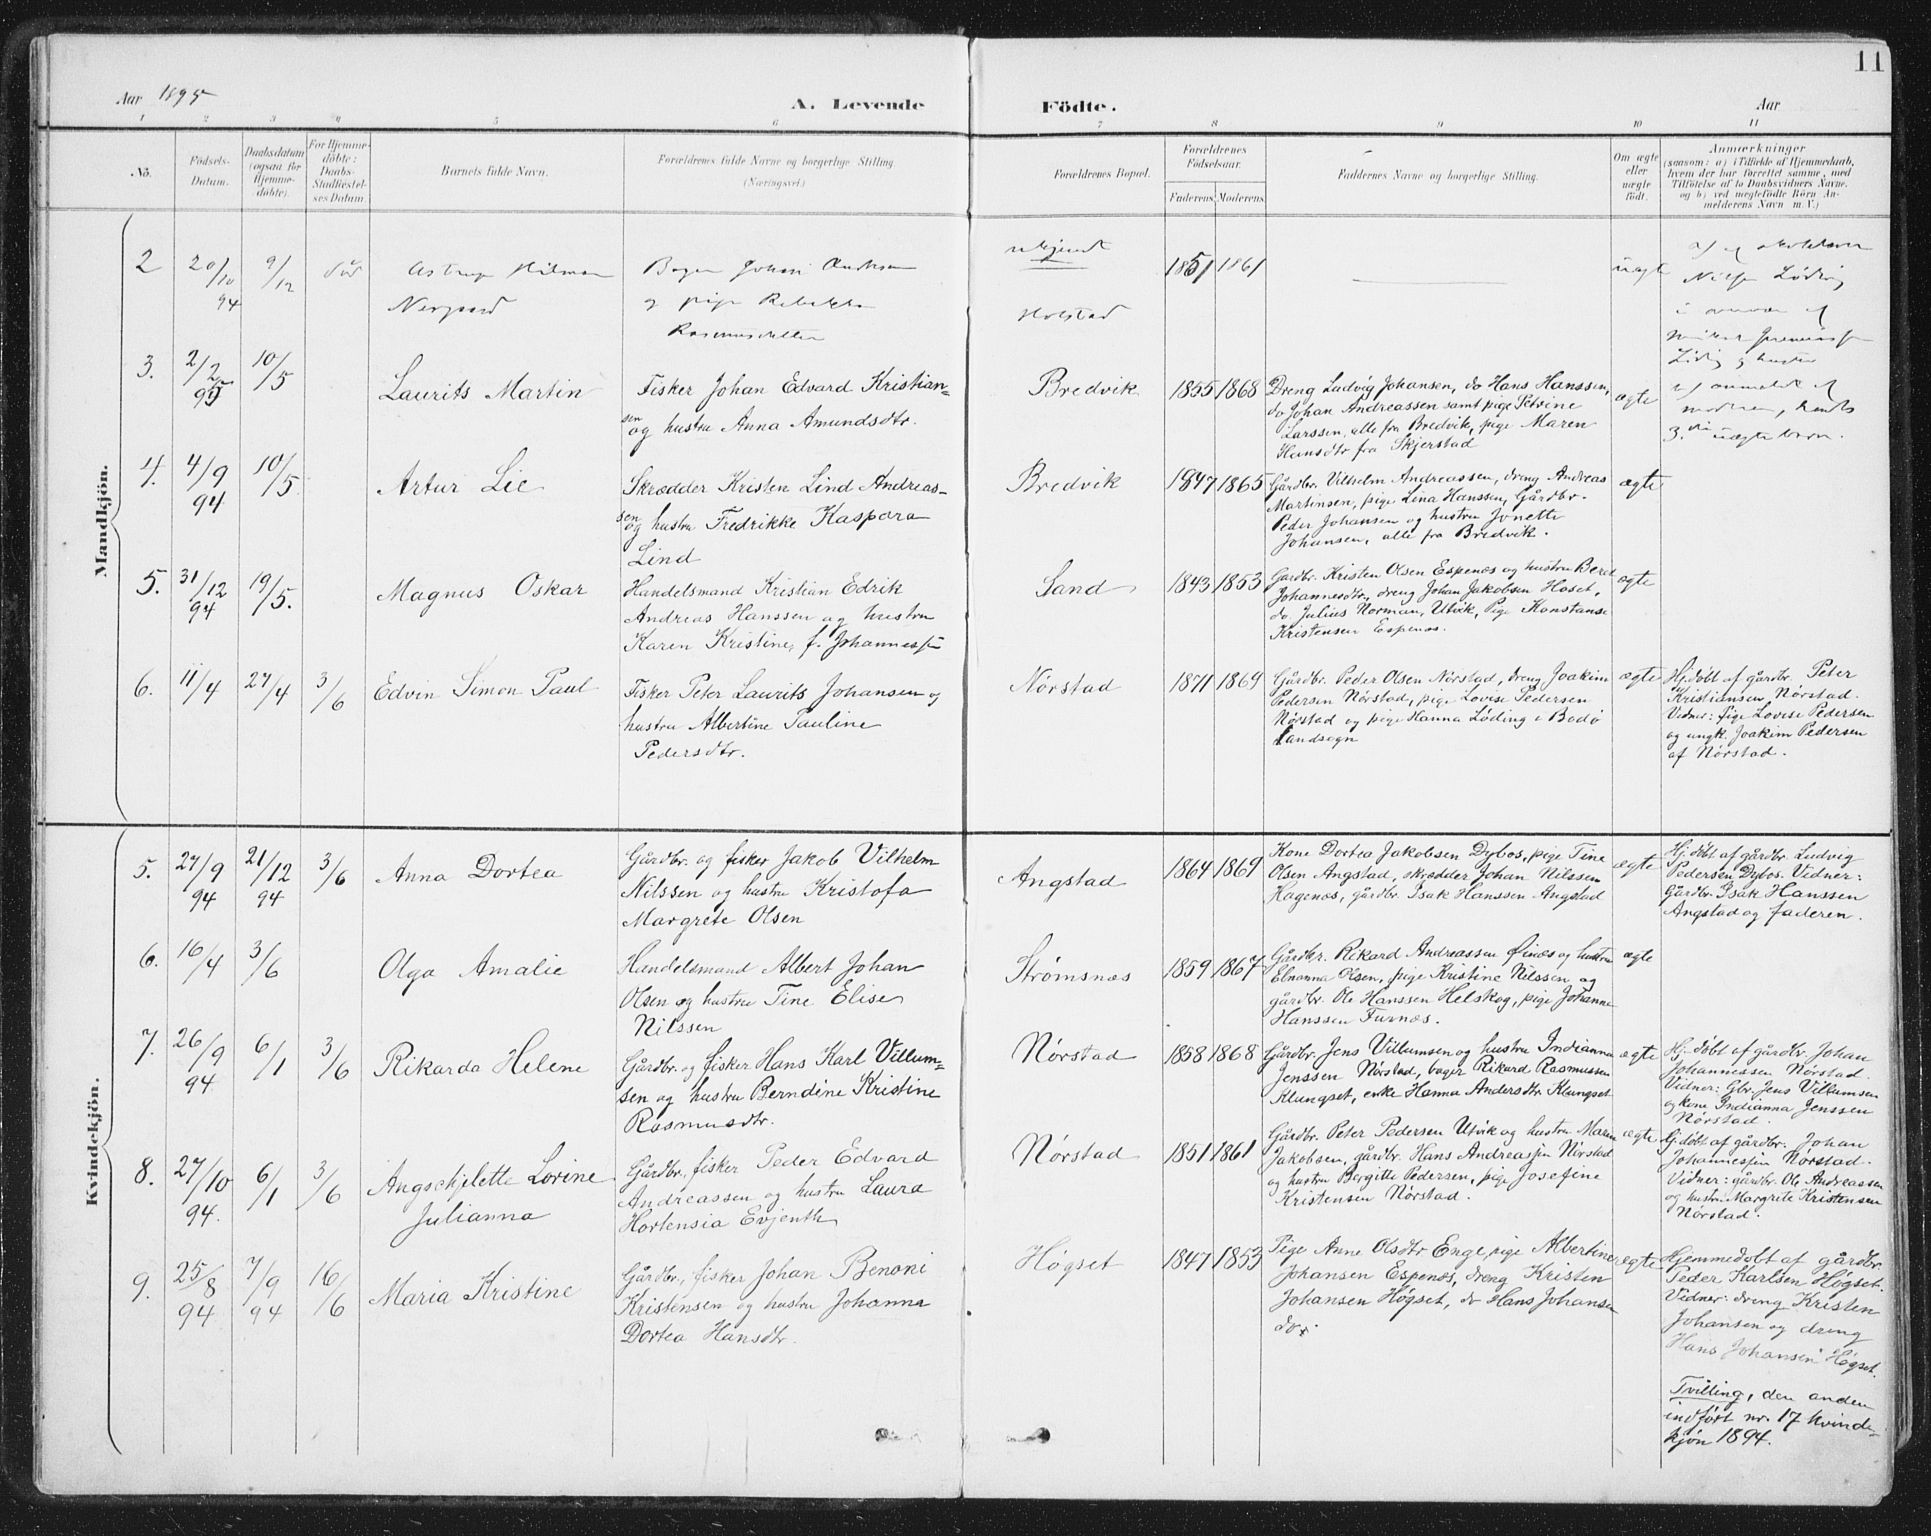 11
Aar 1895
A. Levende
Födte.
Aar
1 2 3 4 5 6 7 8 9 10 11
No.
Födsels-
Datum.
Daabsdatum
(ogsaa for
Hjemme-
döbte).
For Hjemme-
döbte:
Daabs-
Stadfæstel-
ses Datum.
Barnets fulde Navn.
Forældrenes fulde Navne og borgerlige Stilling.
(Næringsvei.)
Forældrenes Bopæl.
Forældrenes
Födselsaar.
Faderens. Moderens.
Faddernes Navne og borgerlige Stilling.
Om ægte
eller
uægte
födt.
Anmærkninger
(saasom: a) i Tilfælde af Hjemmedaab,
hvem der har forrettet samme, med
Tilföielse af to Daabsvidners Navne.
og b) ved uægtefödte Börn An-
melderens Navn m. V.)
Mandkjön.
2 20/10 94 9/12
Nergaard
Bager Johan
og pige Rebekka
Rasmusdatter
ukjendt
1851 1861
uægte
Nils Løding
i
Løding og hustru
anmeldt af
moderen, hendes
3. uægte barn.
3. 2/2 95 10/5
Laurits Martin
Fisker Johan Edvard Kristian-
sen og hustru Anna Amundsdtr.
Bredvik
1855 1868
Dreng Ludvig Johansen, do Hans Hanssen,
do Johan Andreassen samt pige Petrine
Larssen, alle fra Bredvik, pige Maren
Hansdtr fra Skjerstad
ægte
4. 4/9 94 10/5
Artur Lie
Skrædder Kristen Lind Andreas-
sen og hustru Fredrikke Kaspara
Lind
Bredvik
1847 1865
Gårdbr. Vilhelm Andreassen, dreng Andreas
Martinsen, pige Lina Hanssen, Gårdbr.
Peder Johansen og hustru Jonette
Johansen, alle fra Bredvik.
ægte
5. 31/12 94 19/5.
Magnus Oskar
Handelsmand Kristian Edrik
Andreas Hanssen og hustru
Karen Kristine, f. Johannessen
Sand
1843 1853
Gårdbr. Kristen Olsen Espenes og hustru Beret
Johannesdtr, dreng Johan Jakobsen Hoset,
do. Julius Norman, Utvik, Pige Konstanse
Kristensen Espenæs.
ægte
6. 11/4 27/4 3/6
Edvin Simon Paul
Fisker Peter Laurits Johansen og
hustru Albertine Pauline
Pedersdtr.
Nørstad
1871 1869
Gårdbr. Peder Olsen Nørstad, dreng Joakim
Pedersen Nørstad, pige Lovise Pedersen
Nørstad og pige Hanna Løding i Bodø
Landsogn
ægte
Hj.døbt af gårdbr. Peter
Kristiansen, Nørstad.
Vidner: pige Lovise Pedersen
og ungk. Joakim Pedersen
af Nørstad.
Kvindekjön.
5. 27/9 94 21/12 94 3/6
Anna Dortea
Gårdbr. og fisker Jakob Vilhelm
Nilssen og hustru Kristofa
Margrete Olsen
Angstad
1864 1869
Kone Dortea Jakobsen Dybos, pige Tine
Olsen Angstad, skrædder Johan Nilssen
Hagenæs, gårdbr. Isak Hanssen Angstad
ægte
Hj.døbt af gårdbr. Ludvig
Pedersen Dybos. Vidner:
Gårdbr. Isak Hanssen
Angstad og faderen.
6. 16/4 3/6
Olga Amalie
Handelsmand Albert Johan
Olsen og hustru Tine Elise
Nilssen
Strømsnæs
1859 1867
Gårdbr. Rikard Andreassen Finæs og hustru
Elnanna Olsen, pige Kristine Nilssen og
gårdbr. Ole Hanssen Helskog, pige Johanne
Hanssen Furnæs.
ægte
7. 26/9 94 6/1 3/6
Rikarda Helene
Gårdbr. og fisker Hans Karl Villum-
sen og hustru Berndine Kristine
Rasmusdtr.
Nørstad
1858 1868
Gårdbr. Jens Villumsen og hustru Indianna
Jenssen Nørstad, bager Rikard Rasmussen
Klungset, enke Hanna Andersdtr Klungset
ægte
Hj.døbt af gårdbr. Johan
Johannessen Nørstad.
Vidner: Gbr. Jens Villumsen
og kone Indianna Jenssen
Nørstad.
8. 27/10 94. 6/1 3/6
Angschjelette Lovine
Julianna
Gårdbr., fisker Peder Edvard
Andreassen og hustru Laura
Hortensia Evjenth
Nørstad
1851 1861
Gårdbr. Peter Pedersen Utvik og hustru Maria
Jakobsen, gårdbr. Hans Andreassen Nørstad
og hustru Bergitte Pedersen, pige Josefine
Kristensen Nørstad.
ægte
Hj.døbt af gårdbr. Johan
Johannessen Nørstad.
Vidner: gårdbr. Ole Andreassen
og hustru Margrete Kristensen
Nørstad.
9. 25/8 94 7/9 94 16/6
Maria Kristine
Gårdbr., fisker Johan Benoni
Kristensen og hustru Johanna
Dortea Hansdtr.
Høgset
1847 1853
Pige Anne Olsdtr Enge, pige Albertine
Johansen Espenæs, dreng Kristen
Johansen Høgset, do Hans Johansen
do.
ægte
Hjemmedøbt af gårdbr.
Peder Karlsen Høgset.
Vidner: dreng Kristen
Johansen og dreng
Hans Johansen Høgset.
Tvilling, den anden
indført nr. 17 kvinde-
kjøn 1894.